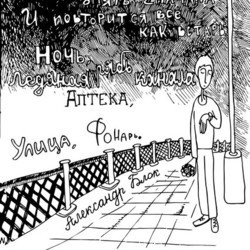 И повторится всё,
как встарь
Ночь,
ледяная рябь
канала,
Аптека,
Улица, Фонарь.
Александр Блок